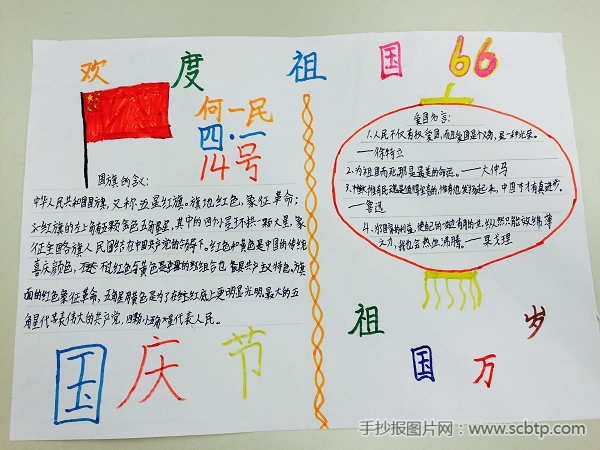 欢度祖国66
何一民
四.一
14号
国旗的含议:
中华人民共和国国旗,又称五星红旗。旗地红色,象征革命;
旗的左上角有五颗黄色五角星,其中的四个小星环拱一颗大星,象
征全国各族人民团结在中国共产党的领导下。红色和黄色是中国的传统
喜庆颜色,不过红色与黄色是的组合也是共产主义特色。旗
面的红色象征革命,五角星用黄色是为了在红底上更明显光明。最大的五
角星代表伟大的共产党,四颗小代表人民。
国庆节
爱国名言:
1.人民不仅有权爱国,而且爱国是个义务,是一种光荣。
——徐特立
2.为祖国而死那是最美的命运。——大仲马
3.惟有民魂是值得宝贵的,惟有他发扬起来,中国才有真进步。
——鲁迅
4.为国家的利益,使自己的一生变有用的一生,纵然只能效绵薄
之力,我也会热血沸腾。——果戈理
祖国万岁
手抄报图片网:www.scbtp.com